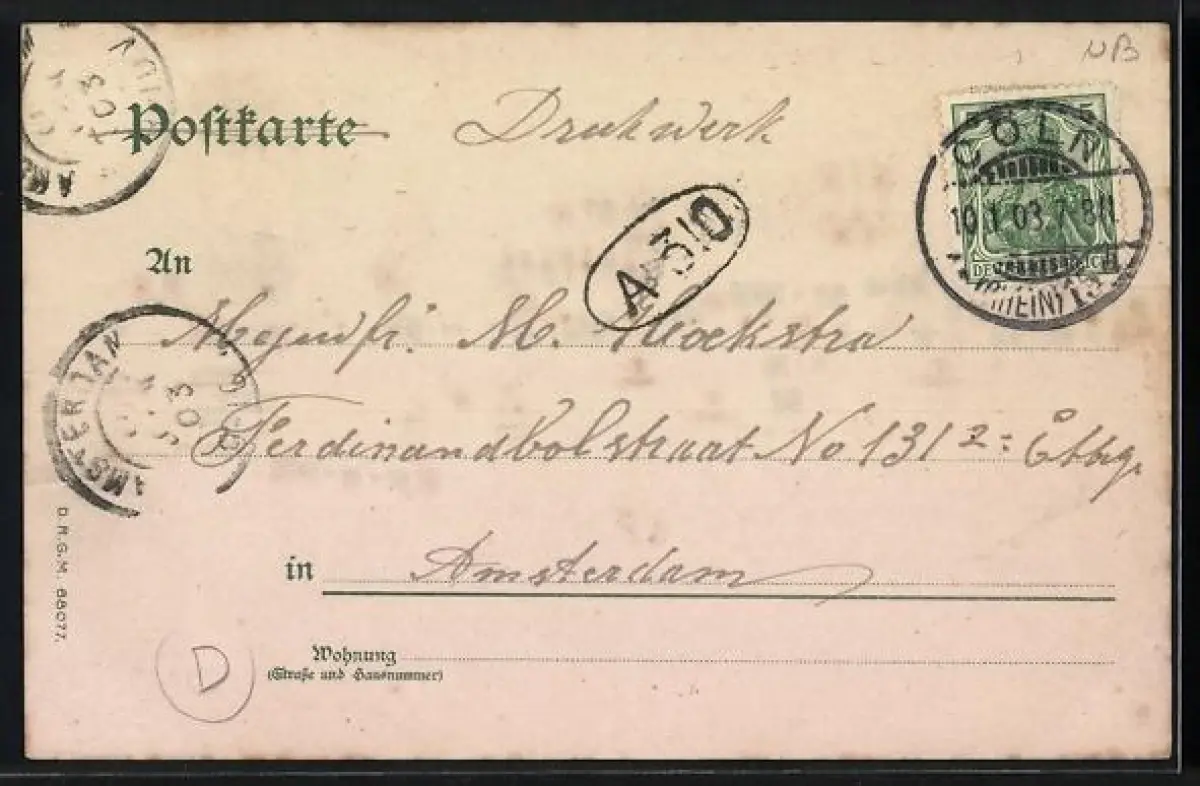 NB
Postkarte Drukwerk
CÖLN
10.1.03.7-8N.
(RHEIN)
5
DEUTSCHES REICH
A 310
An
Mejuffr. M. Hoekstra
Ferdinandbolstraat No 131 2= Etttge
AMSTERDAM
03
in Amsterdam
D. R. G. M. 88077.
D
Wohnung
(Straße und Hausnummer)